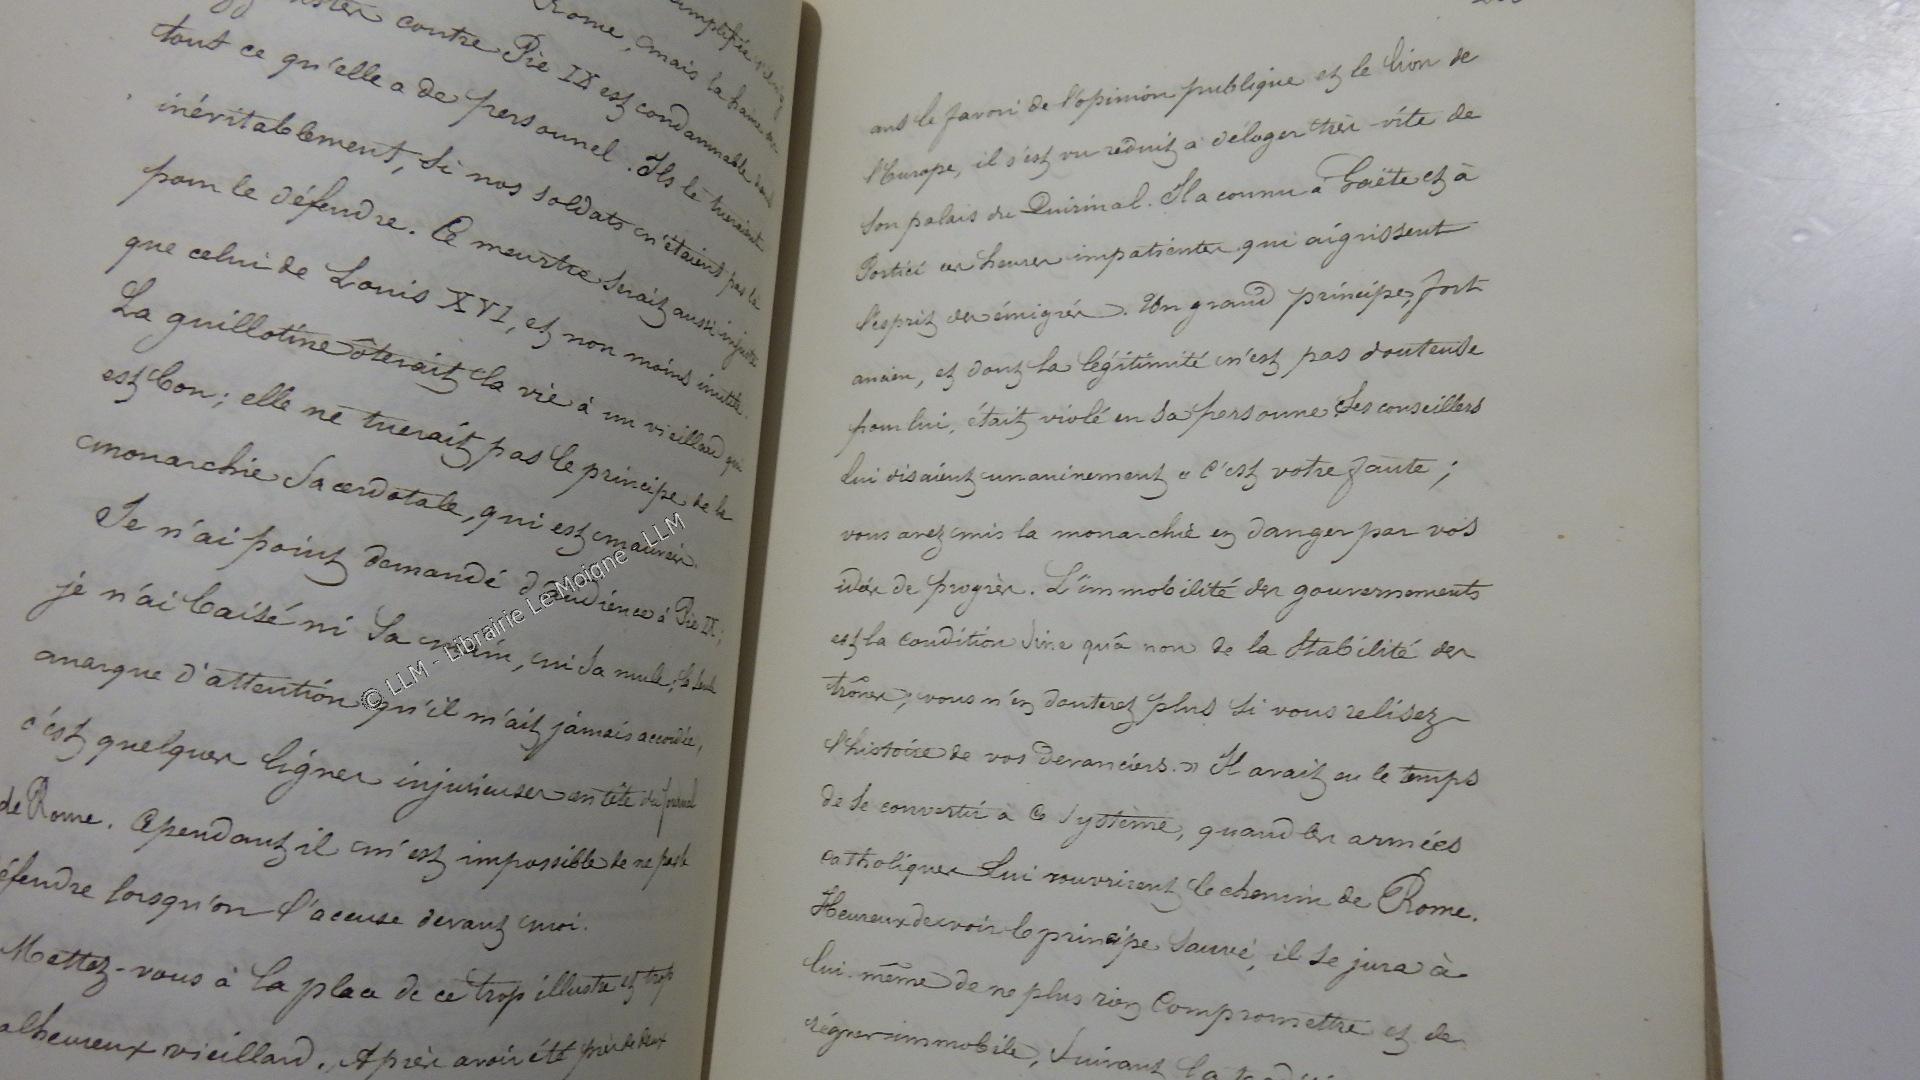 Rome, mais la haine
contre Pie IX est condamnable dans
tout ce qu'elle a de personnel. Ils le tueraient
inévitablement, si nos soldats n'étaient pas là
pour le défendre. Ce meurtre serait aussi injuste
que celui de Louis XVI, et non moins inutile.
La guillotine ôterait la vie à un vieillard qui
est bon; elle ne tuerait pas le principe de la
monarchie sacerdotale, qui est mauvais.
Je n'ai point demandé d'audience à Pie IX;
je n'ai baisé ni sa main, ni sa mule; la seule
marque d'attention qu'il m'ait jamais accordée,
c'est quelques lignes injurieuses en tête du journal
de Rome. Cependant il m'est impossible de ne pas le
éfendre lorsqu'on l'accuse devant moi.
Mettez-vous à la place de ce trop illustre et trop
alheureux vieillard. Après avoir été près de deux
ans le favori de l'opinion publique et le lion de
l'Europe, il s'est vu réduit à déloger très-vite de
son palais du Quirinal. Il a connu à Gaëte et à
Portici ces heures impatientes qui aigrissent
l'esprit des émigrés. Un grand principe, fort
ancien, et dont la légitimité n'est pas douteuse
pour lui, était violé en sa personne. Ses conseillers
lui disaient unanimement « C'est votre faute;
vous avez mis la monarchie en danger par vos
idées de progrès. L'immobilité des gouvernements
est la condition sine quâ non de la stabilité des
trônes; vous n'en douterez plus si vous relisez
l'histoire de vos devanciers. » Il avait eu le temps
de se convertir à ce système, quand les armées
catholiques lui rouvrirent le chemin de Rome.
Heureux de voir le principe sauvé, il se jura à
lui-même de ne plus rien compromettre et de
régner immobile, suivant la
© LLM - Librairie Le Moigne - LLM